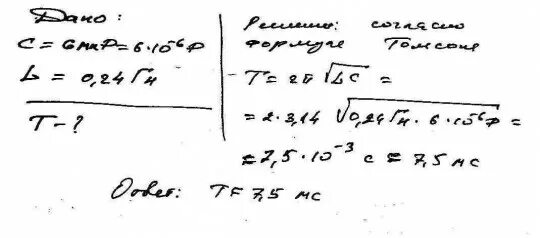 Дано:
C = 6 мкФ = 6·10⁻⁶ Ф
L = 0,24 Гн
T - ?
Решение: согласно
формуле Томсона
T = 2π √LC =
= 2·3,14 √0,24 Гн · 6·10⁻⁶ Ф =
= 7,5·10⁻³ с = 7,5 мс
Ответ: T = 7,5 мс